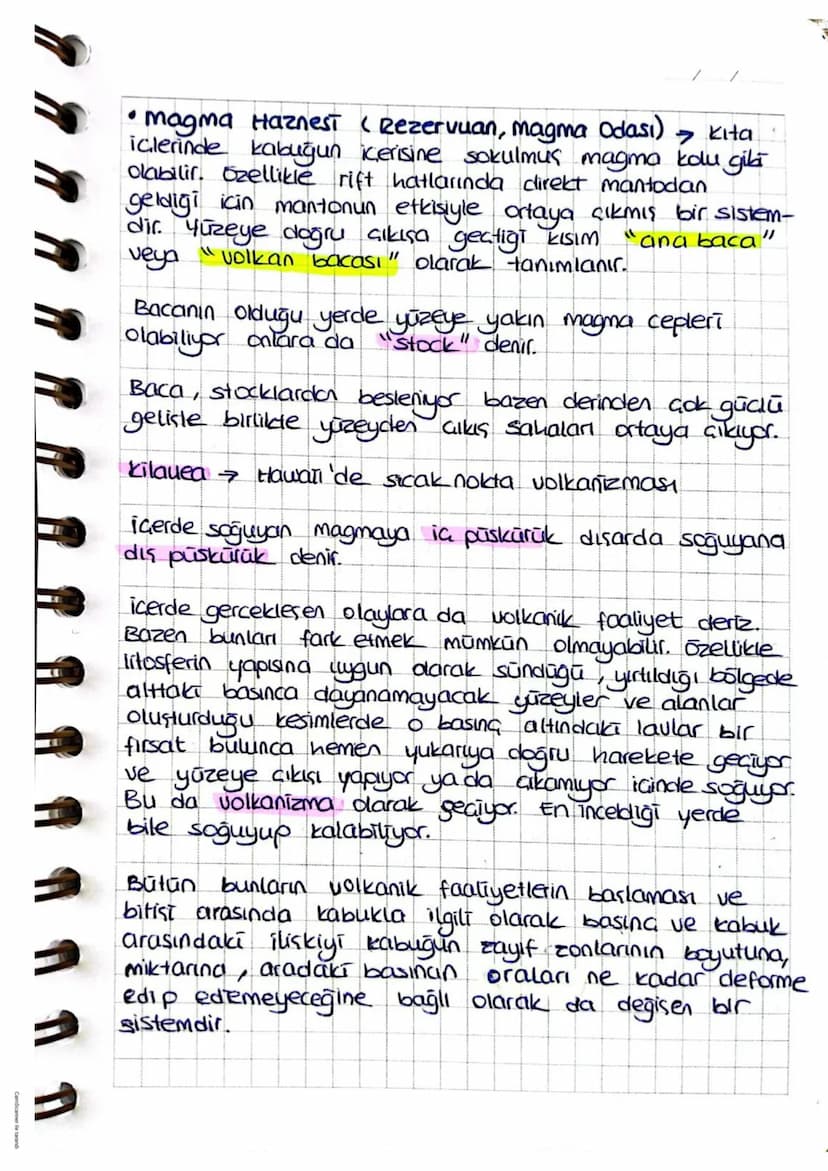 / /
• Magma Haznesi (Rezervuan, Magma Odası) → kıta
içlerinde kabuğun içerisine sokulmuş magma kolu gibi
olabilir. Özellikle rift hatlarında direkt mantodan
geldiği için mantonun etkisiyle ortaya çıkmış bir sistem-
dir. Yüzeye doğru çıkışa geçtiği kısım "ana baca"
veya "volkan bacası" olarak tanımlanır.
Bacanın olduğu yerde yüzeye yakın magma cepleri
olabiliyor onlara da "stock" denir.
Baca, stocklardan besleniyor bazen derinden çok güçlü
gelişle birlikte yüzeyden çıkış sahaları ortaya çıkıyor.
Kilauea → Hawaii'de sıcak nokta volkanizması
içerde soğuyan magmaya iç püskürük dışarda soğuyana
dış püskürük denir.
içerde gerçekleşen olaylara da volkanik faaliyet deriz.
Bazen bunları fark etmek mümkün olmayabilir. Özellikle
litosferin yapısına uygun olarak sündüğü, yırtıldığı bölgede
alttaki basınca dayanamayacak yüzeyler ve alanlar
oluşturduğu kesimlerde o basınç altındaki lavlar bir
fırsat bulunca hemen yukarıya doğru harekete geçiyor
ve yüzeye çıkışı yapıyor yada çıkamıyor içinde soğuyor.
Bu da volkanizma olarak geçiyor. En inceldiği yerde
bile soğuyup kalabiliyor.
Bütün bunların volkanik faaliyetlerin başlaması ve
bitişi arasında kabukla ilgili olarak basınç ve kabuk
arasındaki ilişkiyi kabuğun zayıf zonlarının boyutuna,
miktarına, aradaki basıncın oraları ne kadar deforme
edip edemeyeceğine bağlı olarak da değişen bir
sistemdir.
CamScanner ile tarandı